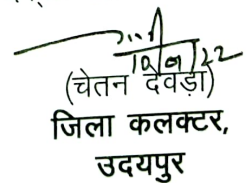 (चेतन देवड़ा)
जिला कलक्टर,
उदयपुर